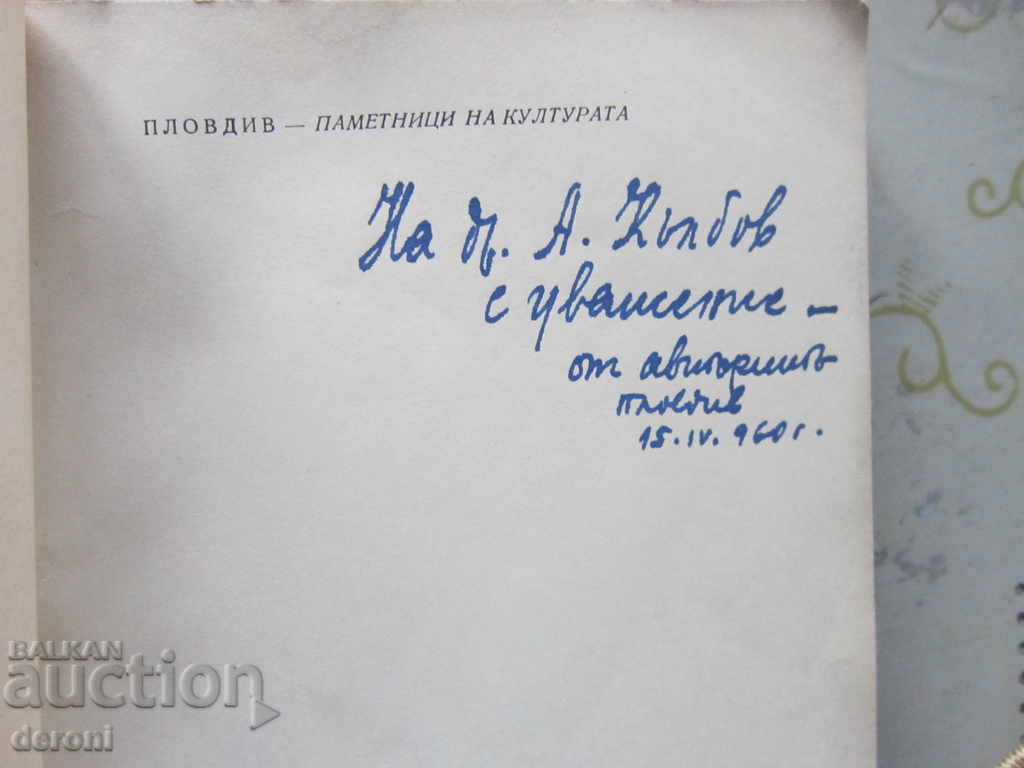 ПЛОВДИВ — ПАМЕТНИЦИ НА КУЛТУРАТА
На др. А. Кълбов
с уважение —
от авторитѣ
Пловдив
15.IV. 960 г.
BALKAN
auction
deroni